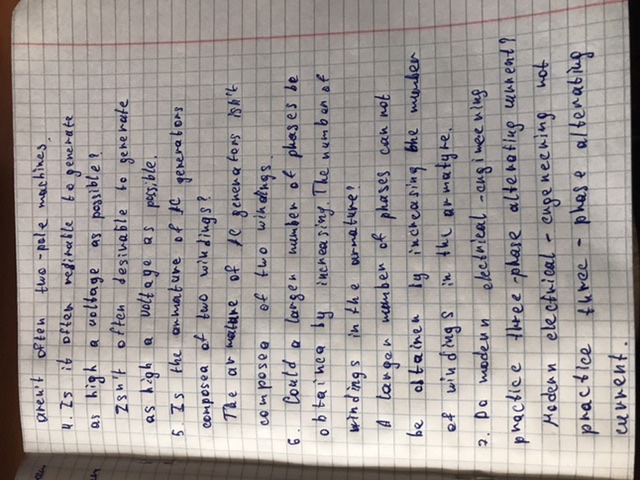 aren't often two-pole machines.
4. Is it often desirable to generate
as high a voltage as possible?
Isn't often desinable to generate
as high a voltage as possible.
5. Is the anmature of AC generations
composea of two windings?
The armature of AC generators isn't
composea of two windings
6. Could a langen number of phases be
obtainea by increasing The number of
windings in the armature?
A langen number of phases can not
be obtainen by increasing the number
of windings in the armatyre.
7. Do modern electrical-engineering
practice three-phase altenating current?
Modern electrical-engeneening not
practice three-phase altenating
current.